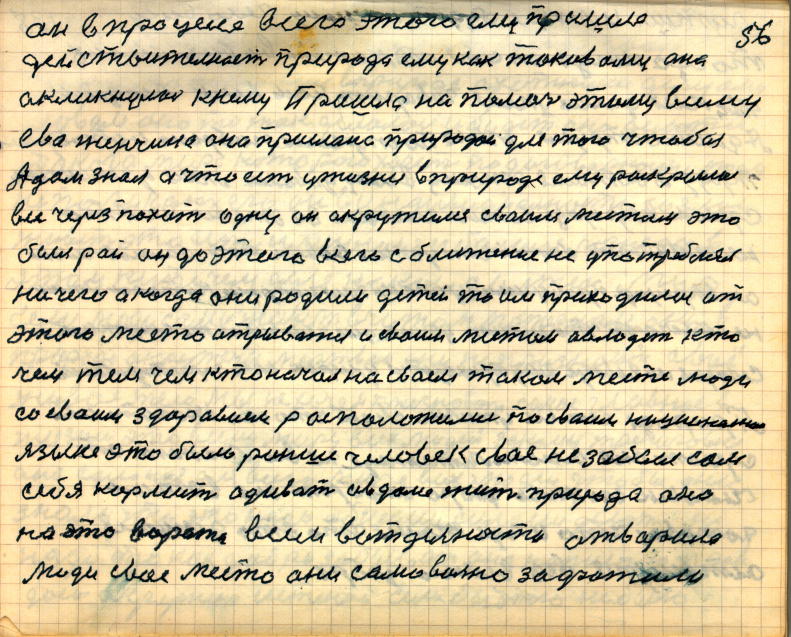 он в процеса всего этого ему пришла
56
действителност природа ему как таковому она
окликнулас кнему Пришла на помоч этому всиму
ева женчина она прислана природой для того чтобы
Адам знал а что ест ужизни вприроде ему роскрылос
все через похот одну он окружился своим местом это
был рай он до этого всего сближение не употреблял
ничего а когда они родили детей то им приходилос от
этого место отрыватся и своим местом овладет кто
чем тем чем кто начал на своем таком месте люди
со своим здоравием росположилис по своим национал
языке это было ранше человек свое не забыл сам
себя кормит одиват овдоме жит природа она
на это ворота всем вотделности отварила
люди свое место они самоволно задрожили